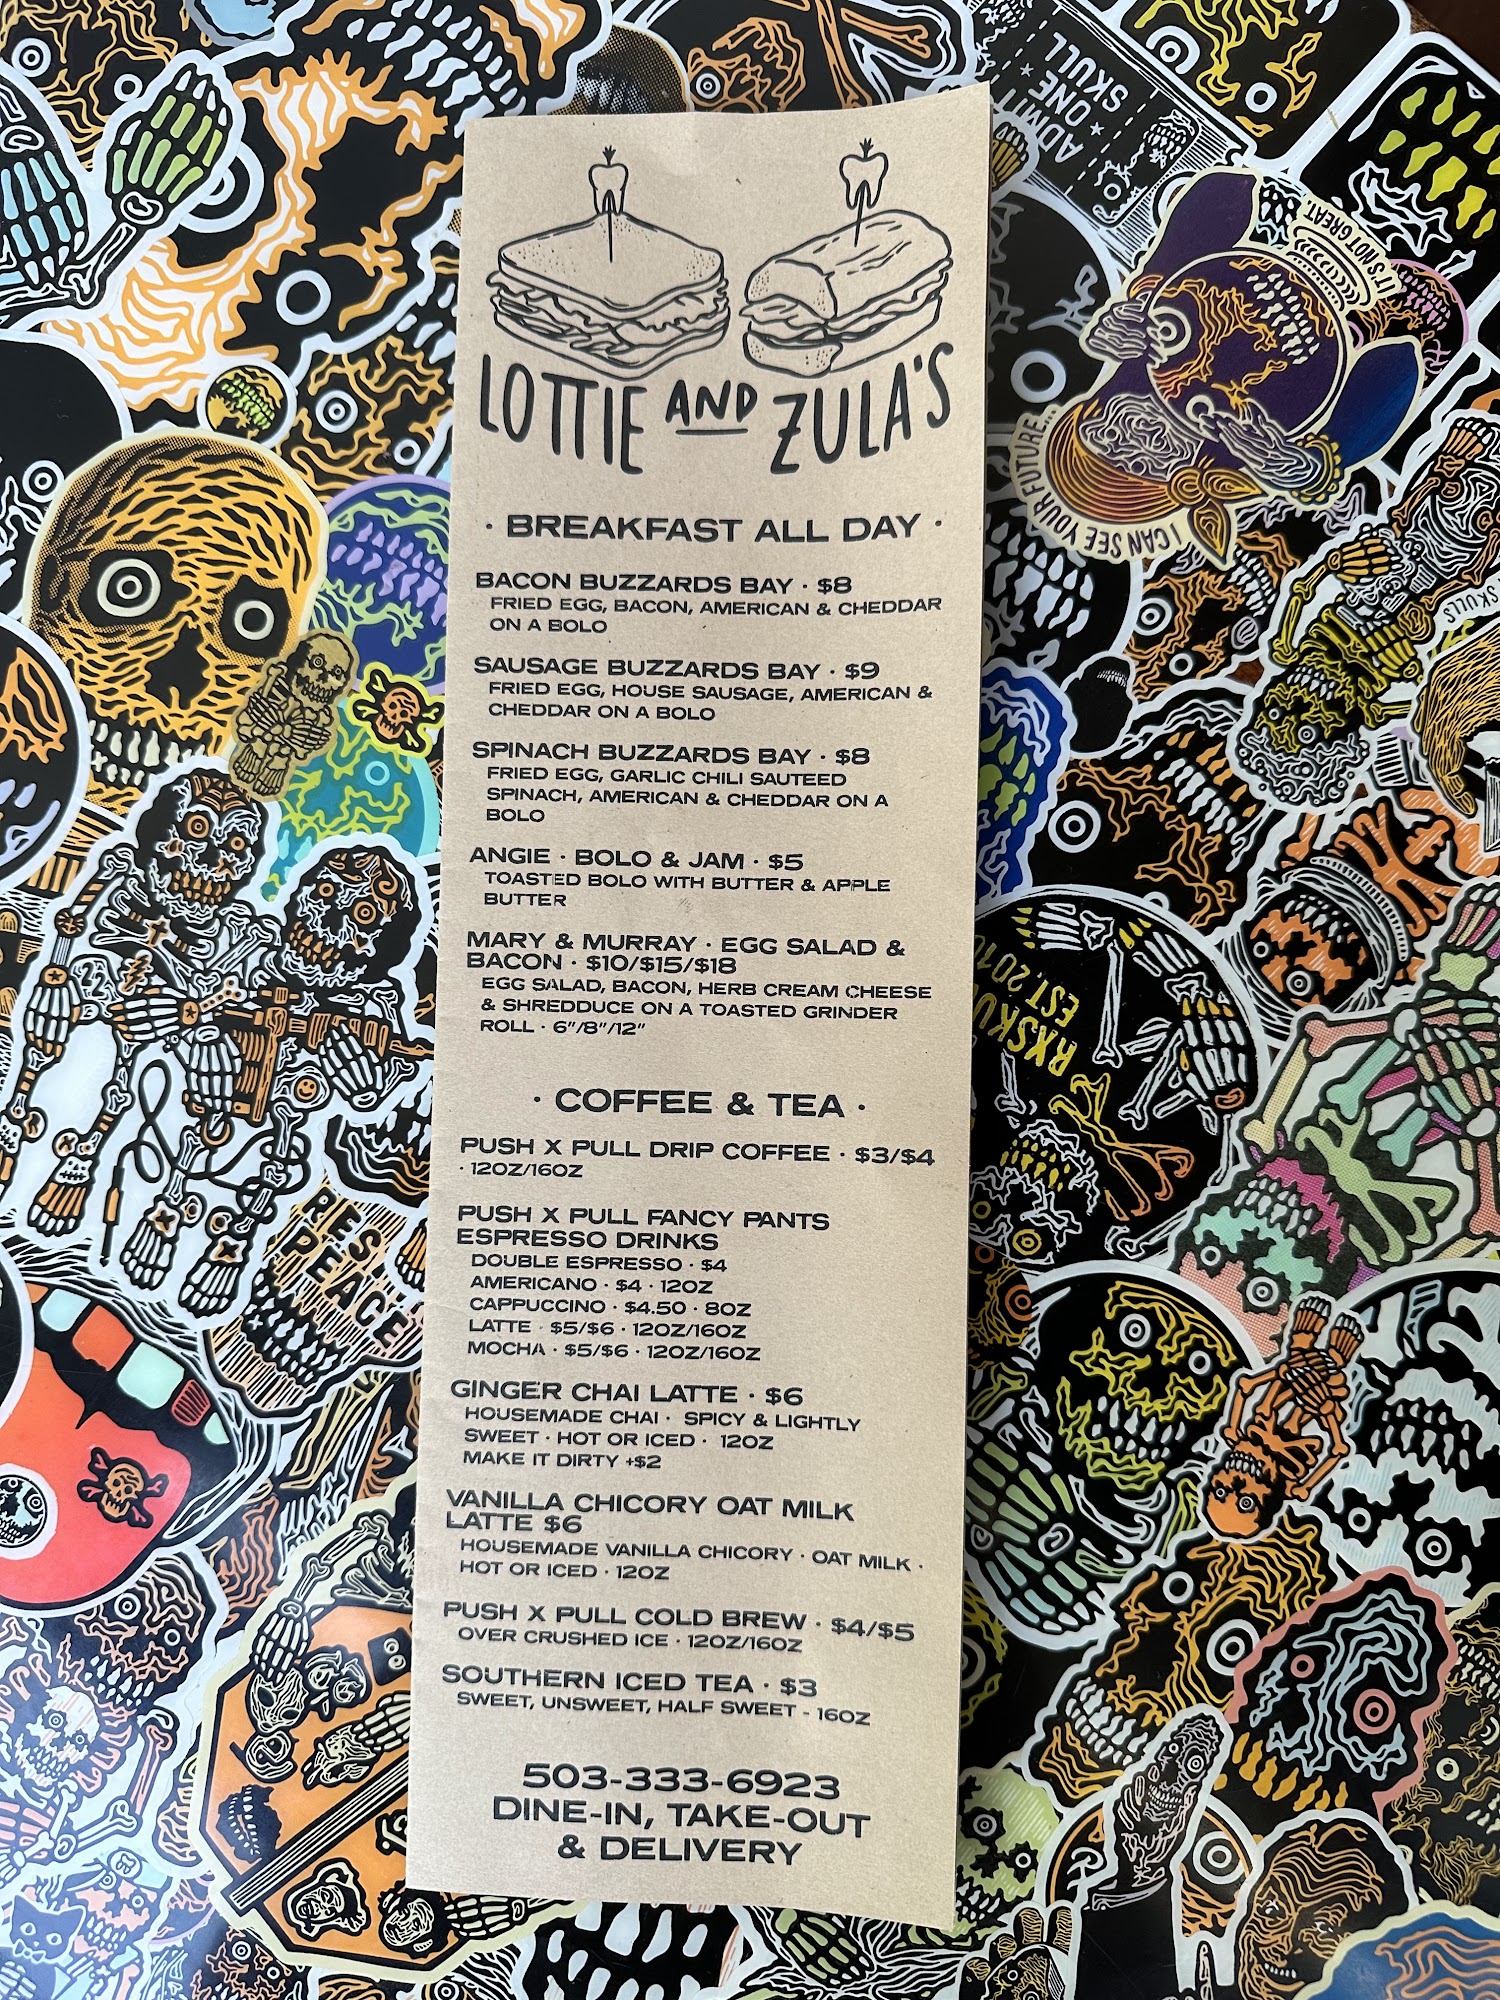 LOTTIE AND ZULA'S
· BREAKFAST ALL DAY ·
BACON BUZZARDS BAY · $8
FRIED EGG, BACON, AMERICAN & CHEDDAR
ON A BOLO
SAUSAGE BUZZARDS BAY · $9
FRIED EGG, HOUSE SAUSAGE, AMERICAN &
CHEDDAR ON A BOLO
SPINACH BUZZARDS BAY · $8
FRIED EGG, GARLIC CHILI SAUTEED
SPINACH, AMERICAN & CHEDDAR ON A
BOLO
ANGIE · BOLO & JAM · $5
TOASTED BOLO WITH BUTTER & APPLE
BUTTER
MARY & MURRAY · EGG SALAD &
BACON · $10/$15/$18
EGG SALAD, BACON, HERB CREAM CHEESE
& SHREDDUCE ON A TOASTED GRINDER
ROLL · 6"/8"/12"
· COFFEE & TEA ·
PUSH X PULL DRIP COFFEE · $3/$4
· 12OZ/16OZ
PUSH X PULL FANCY PANTS
ESPRESSO DRINKS
DOUBLE ESPRESSO · $4
AMERICANO · $4 · 12OZ
CAPPUCCINO · $4.50 · 8OZ
LATTE · $5/$6 · 12OZ/16OZ
MOCHA · $5/$6 · 12OZ/16OZ
GINGER CHAI LATTE · $6
HOUSEMADE CHAI · SPICY & LIGHTLY
SWEET · HOT OR ICED · 12OZ
MAKE IT DIRTY +$2
VANILLA CHICORY OAT MILK
LATTE $6
HOUSEMADE VANILLA CHICORY · OAT MILK ·
HOT OR ICED · 12OZ
PUSH X PULL COLD BREW · $4/$5
OVER CRUSHED ICE · 12OZ/16OZ
SOUTHERN ICED TEA · $3
SWEET, UNSWEET, HALF SWEET - 16OZ
503-333-6923
DINE-IN, TAKE-OUT
& DELIVERY
ADMIT
ONE
SKULL
I CAN SEE YOUR FUTURE...
IT'S NOT GREAT.
SKULLS
RXSKU
EST. 201
REST
PEACE